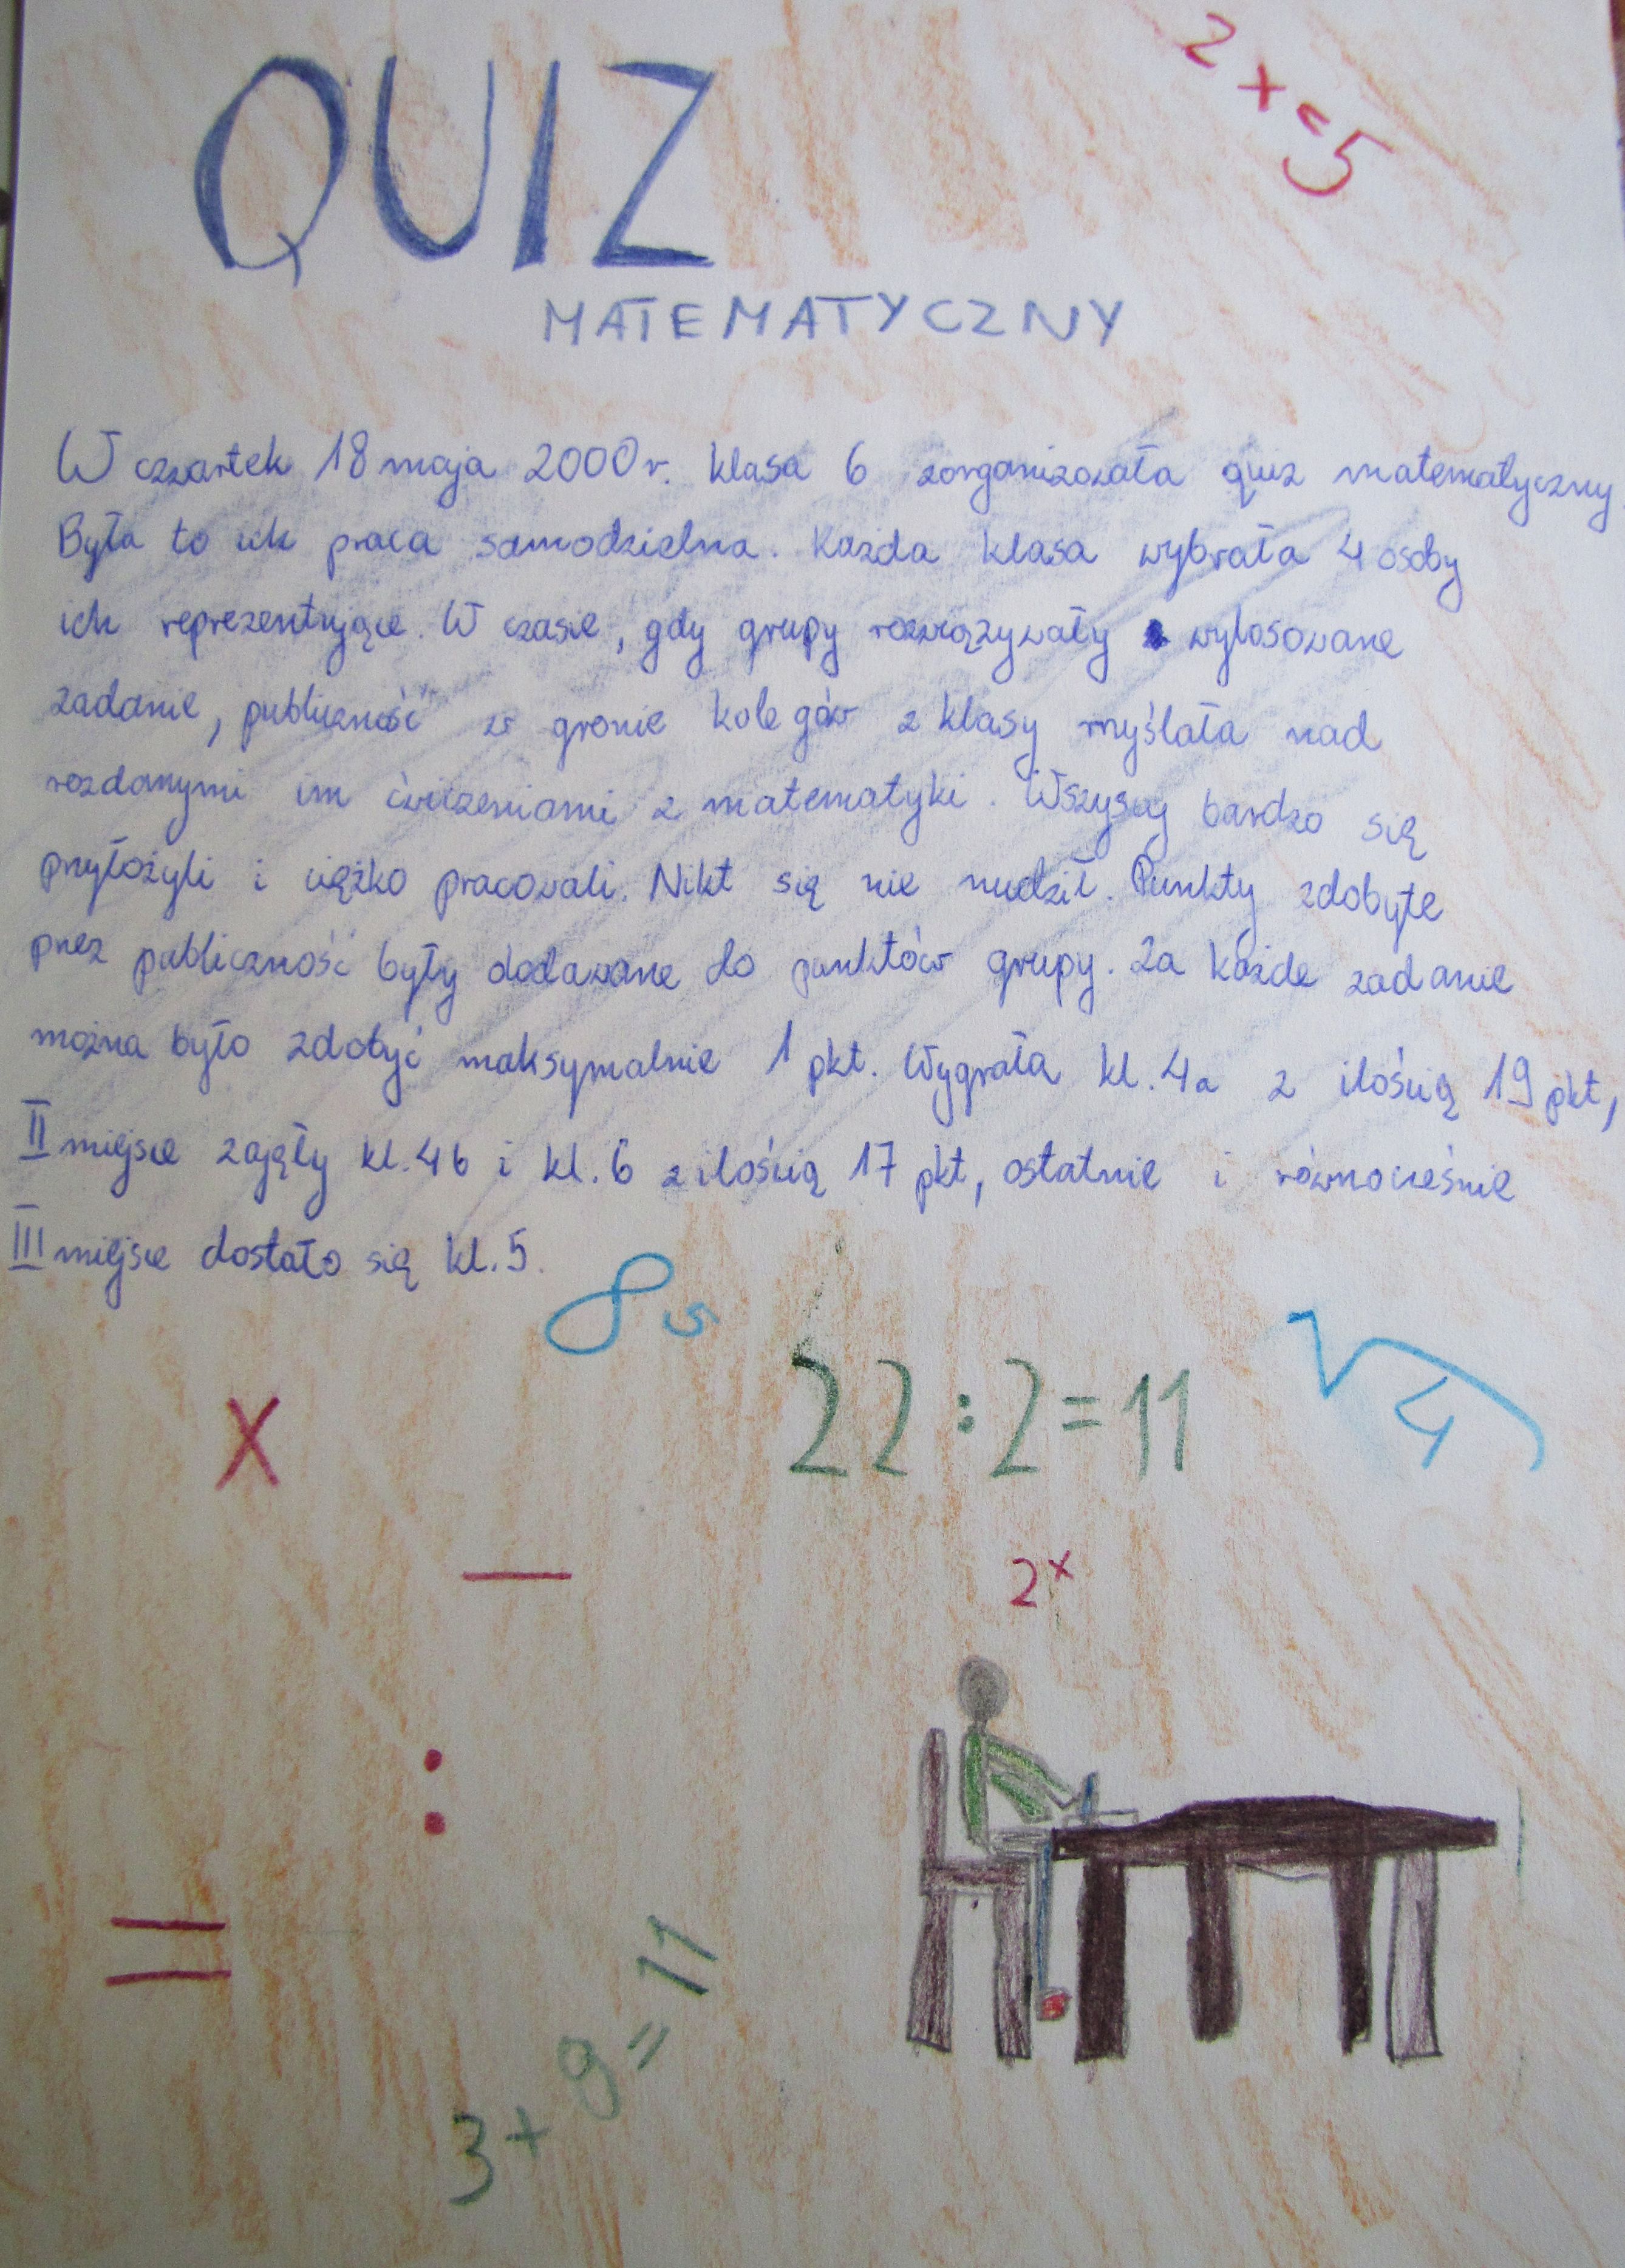 2 x = 5
QUIZ
MATEMATYCZNY
W czwartek 18 maja 2000 r. klasa 6 zorganizowała quiz matematyczny.
Była to ich praca samodzielna. Każda klasa wybrała 4 osoby
ich reprezentujące. W czasie, gdy grupy rozwiązywały wylosowane
zadanie, publiczność w gronie kolegów z klasy myślała nad
rozdanymi im ćwiczeniami z matematyki. Wszyscy bardzo się
przyłożyli i ciężko pracowali. Nikt się nie nudził. Punkty zdobyte
przez publiczność były dodawane do punktów grupy. Za każde zadanie
można było zdobyć maksymalnie 1 pkt. Wygrała kl. 4a z ilością 19 pkt,
II miejsce zajęły kl. 4b i kl. 6 z ilością 17 pkt, ostatnie i równocześnie
III miejsce dostało się kl. 5.
8
22 : 2 = 11
√4
x
–
2ˣ
:
=
3 + 9 = 11